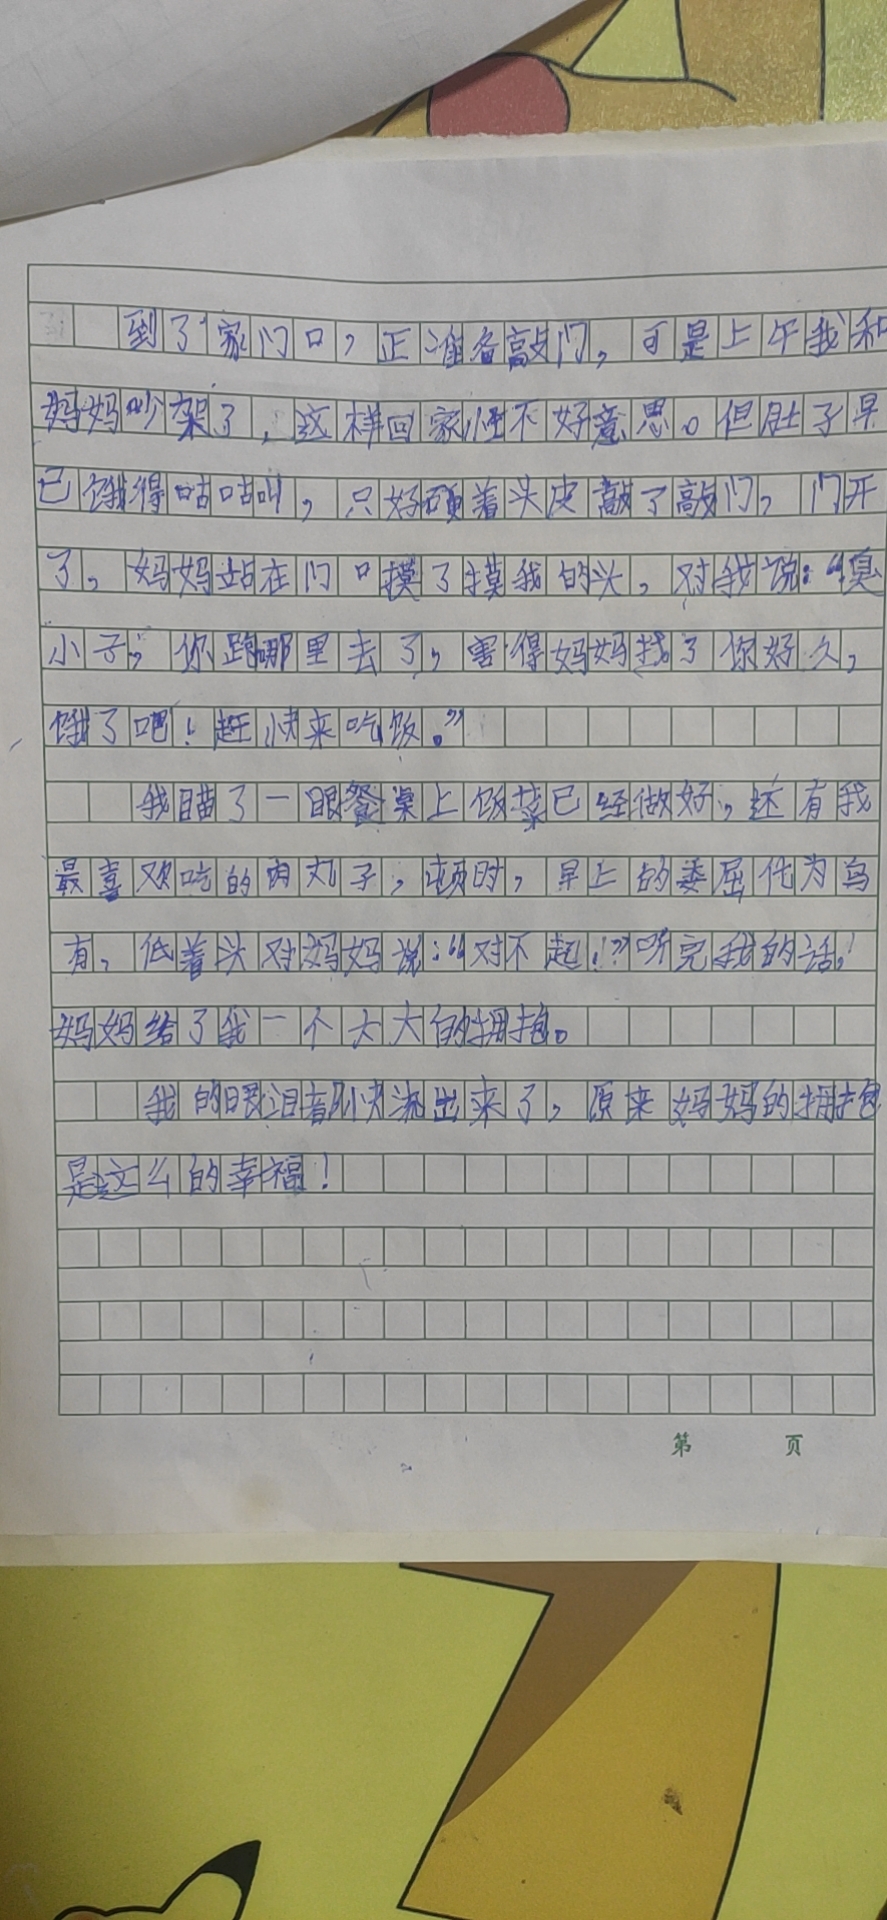 到了家门口，正准备敲门，可是上午我和
妈妈吵架了，这样回家怪不好意思。但肚子早
已饿得咕咕叫，只好硬着头皮敲了敲门，门开
了，妈妈站在门口摸了摸我的头，对我说：“臭
小子，你跑哪里去了，害得妈妈找了你好久，
饿了吧！赶快来吃饭。”
我瞄了一眼餐桌上饭菜已经做好，还有我
最喜欢吃的肉丸子，顿时，早上的委屈化为乌
有，低着头对妈妈说：“对不起！”听完我的话，
妈妈给了我一个大大的拥抱。
我的眼泪都快流出来了，原来妈妈的拥抱
是这么的幸福！
第 页